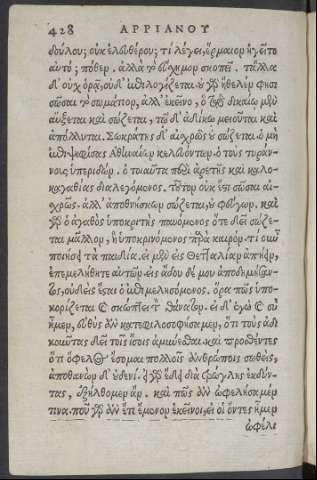 428 ΑΡΡΙΑΝΟΥ
δούλου; οὐκ ἐλευθέρου; τί λέγει, ἕρμαιον ἡγεῖτο
αὐτό; πόθεν. ἀλλὰ τὸ εὔσχημον σκοπεῖ. τἄλλα
δ' οὐχ ὁρᾷ, οὐδ' ἐπιλογίζεται. οὐ γὰρ ἤθελέν φησι
σῶσαι τὸ σωμάτιον, ἀλλ' ἐκεῖνο, ὃ τῷ δικαίῳ μὲν
αὔξεται καὶ σώζεται, τῷ δ' ἀδίκῳ μειοῦται καὶ
ἀπόλλυται. Σωκράτης δ' αἰσχρῶς οὐ σώζεται. ὁ μὴ
ἐπιψηφίσας Ἀθηναίων κελευόντων. ὁ τοὺς τυράν-
νους ὑπεριδών. ὁ τοιαῦτα περὶ ἀρετῆς καὶ καλο-
καγαθίας διαλεγόμενος. τοῦτον οὐκ ἔστι σῶσαι αἰ-
σχρῶς. ἀλλ' ἀποθνήσκων σώζεται, οὐ φεύγων. καὶ
γὰρ ὁ ἀγαθὸς ὑποκριτὴς παυόμενος ὅτε δεῖ σώζε-
ται μᾶλλον, ἢ ὑποκρινόμενος παρὰ καιρόν. τί οὖν
ποιήσῃ τὰ παιδία. εἰ μὲν εἰς Θετταλίαν ἀπῄειν,
ἐπεμελήθητε αὐτῶν. εἰς ᾅδου δέ μου ἀποδημήσαν-
τος, οὐδεὶς ἔσται ὁ ἐπιμελησόμενος. ὅρα πῶς ὑπο-
κορίζεται καὶ σκώπτει τὸν θάνατον. εἰ δ' ἐγὼ καὶ σὺ
ἦμεν, εὐθὺς ἂν κατεφιλοσοφήσαμεν, ὅτι τοὺς ἀδι
κοῦντας δεῖ τοῖς ἴσοις ἀμύνεσθαι. καὶ προσθέντες
ὅτι ὄφελος ἔσομαι πολλοῖς ἀνθρώποις σωθείς,
ἀποθανὼν δ' οὐδενί. εἰ γὰρ ἔδει διὰ τρώγλης ἐκδύν-
τας, ἐξήλθομεν ἄν. καὶ πῶς ἂν ὠφελήσαμέν
τινα. ποῦ γὰρ ἂν ἔτι ἔμενον ἐκεῖνοι, εἰ οἱ ὄντες ἦμεν
ὠφέλι